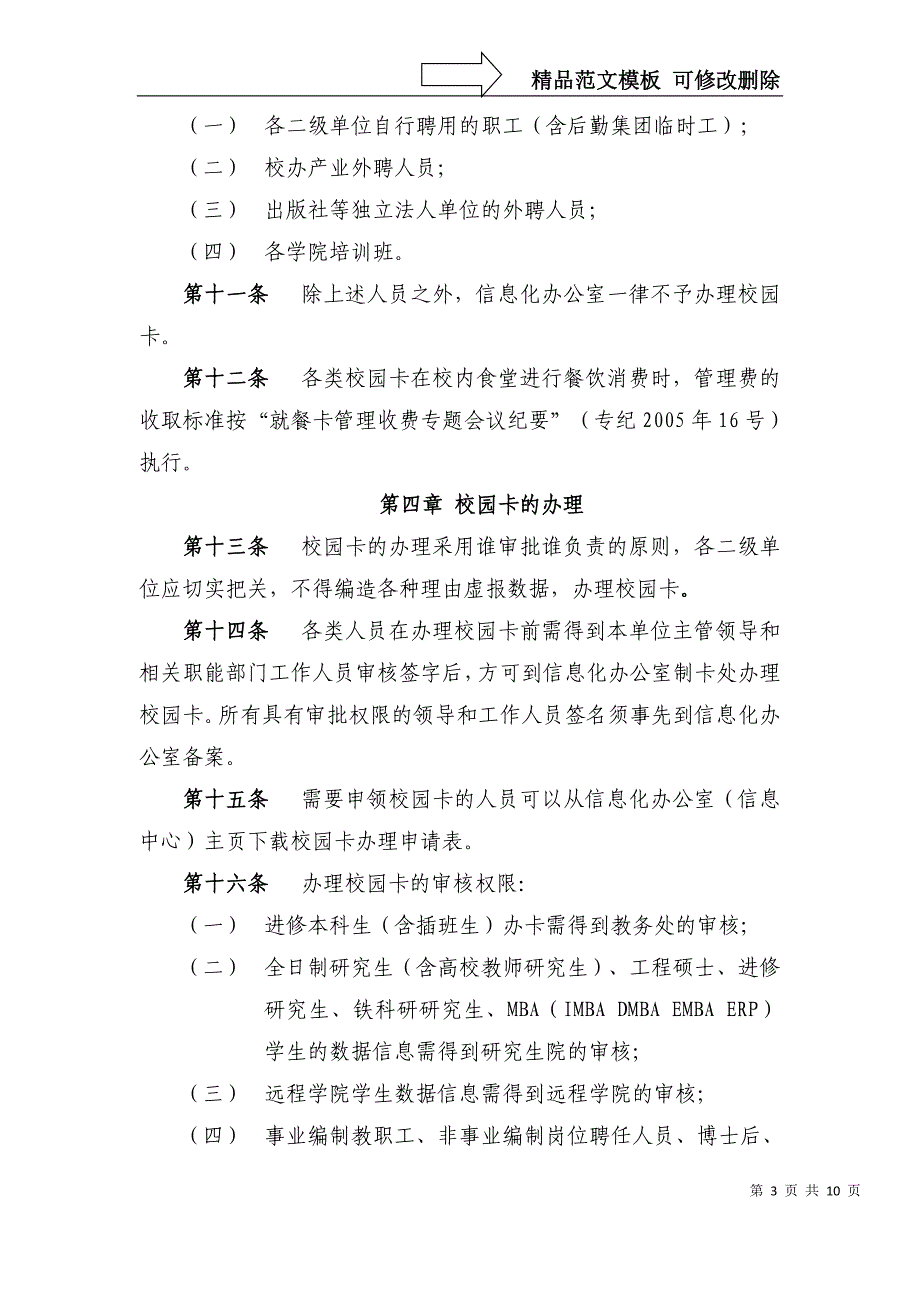 精品范文模板 可修改删除
（一） 各二级单位自行聘用的职工（含后勤集团临时工）；
（二） 校办产业外聘人员；
（三） 出版社等独立法人单位的外聘人员；
（四） 各学院培训班。
第十一条 除上述人员之外，信息化办公室一律不予办理校园
卡。
第十二条 各类校园卡在校内食堂进行餐饮消费时，管理费的
收取标准按“就餐卡管理收费专题会议纪要”（专纪 2005 年 16 号）
执行。
第四章 校园卡的办理
第十三条 校园卡的办理采用谁审批谁负责的原则，各二级单
位应切实把关，不得编造各种理由虚报数据，办理校园卡。
第十四条 各类人员在办理校园卡前需得到本单位主管领导和
相关职能部门工作人员审核签字后，方可到信息化办公室制卡处办理
校园卡。所有具有审批权限的领导和工作人员签名须事先到信息化办
公室备案。
第十五条 需要申领校园卡的人员可以从信息化办公室（信息
中心）主页下载校园卡办理申请表。
第十六条 办理校园卡的审核权限：
（一） 进修本科生（含插班生）办卡需得到教务处的审核；
（二） 全日制研究生（含高校教师研究生）、工程硕士、进修
研究生、铁科研研究生、MBA（IMBA DMBA EMBA ERP）
学生的数据信息需得到研究生院的审核；
（三） 远程学院学生数据信息需得到远程学院的审核；
（四） 事业编制教职工、非事业编制岗位聘任人员、博士后、
第 3 页 共 10 页